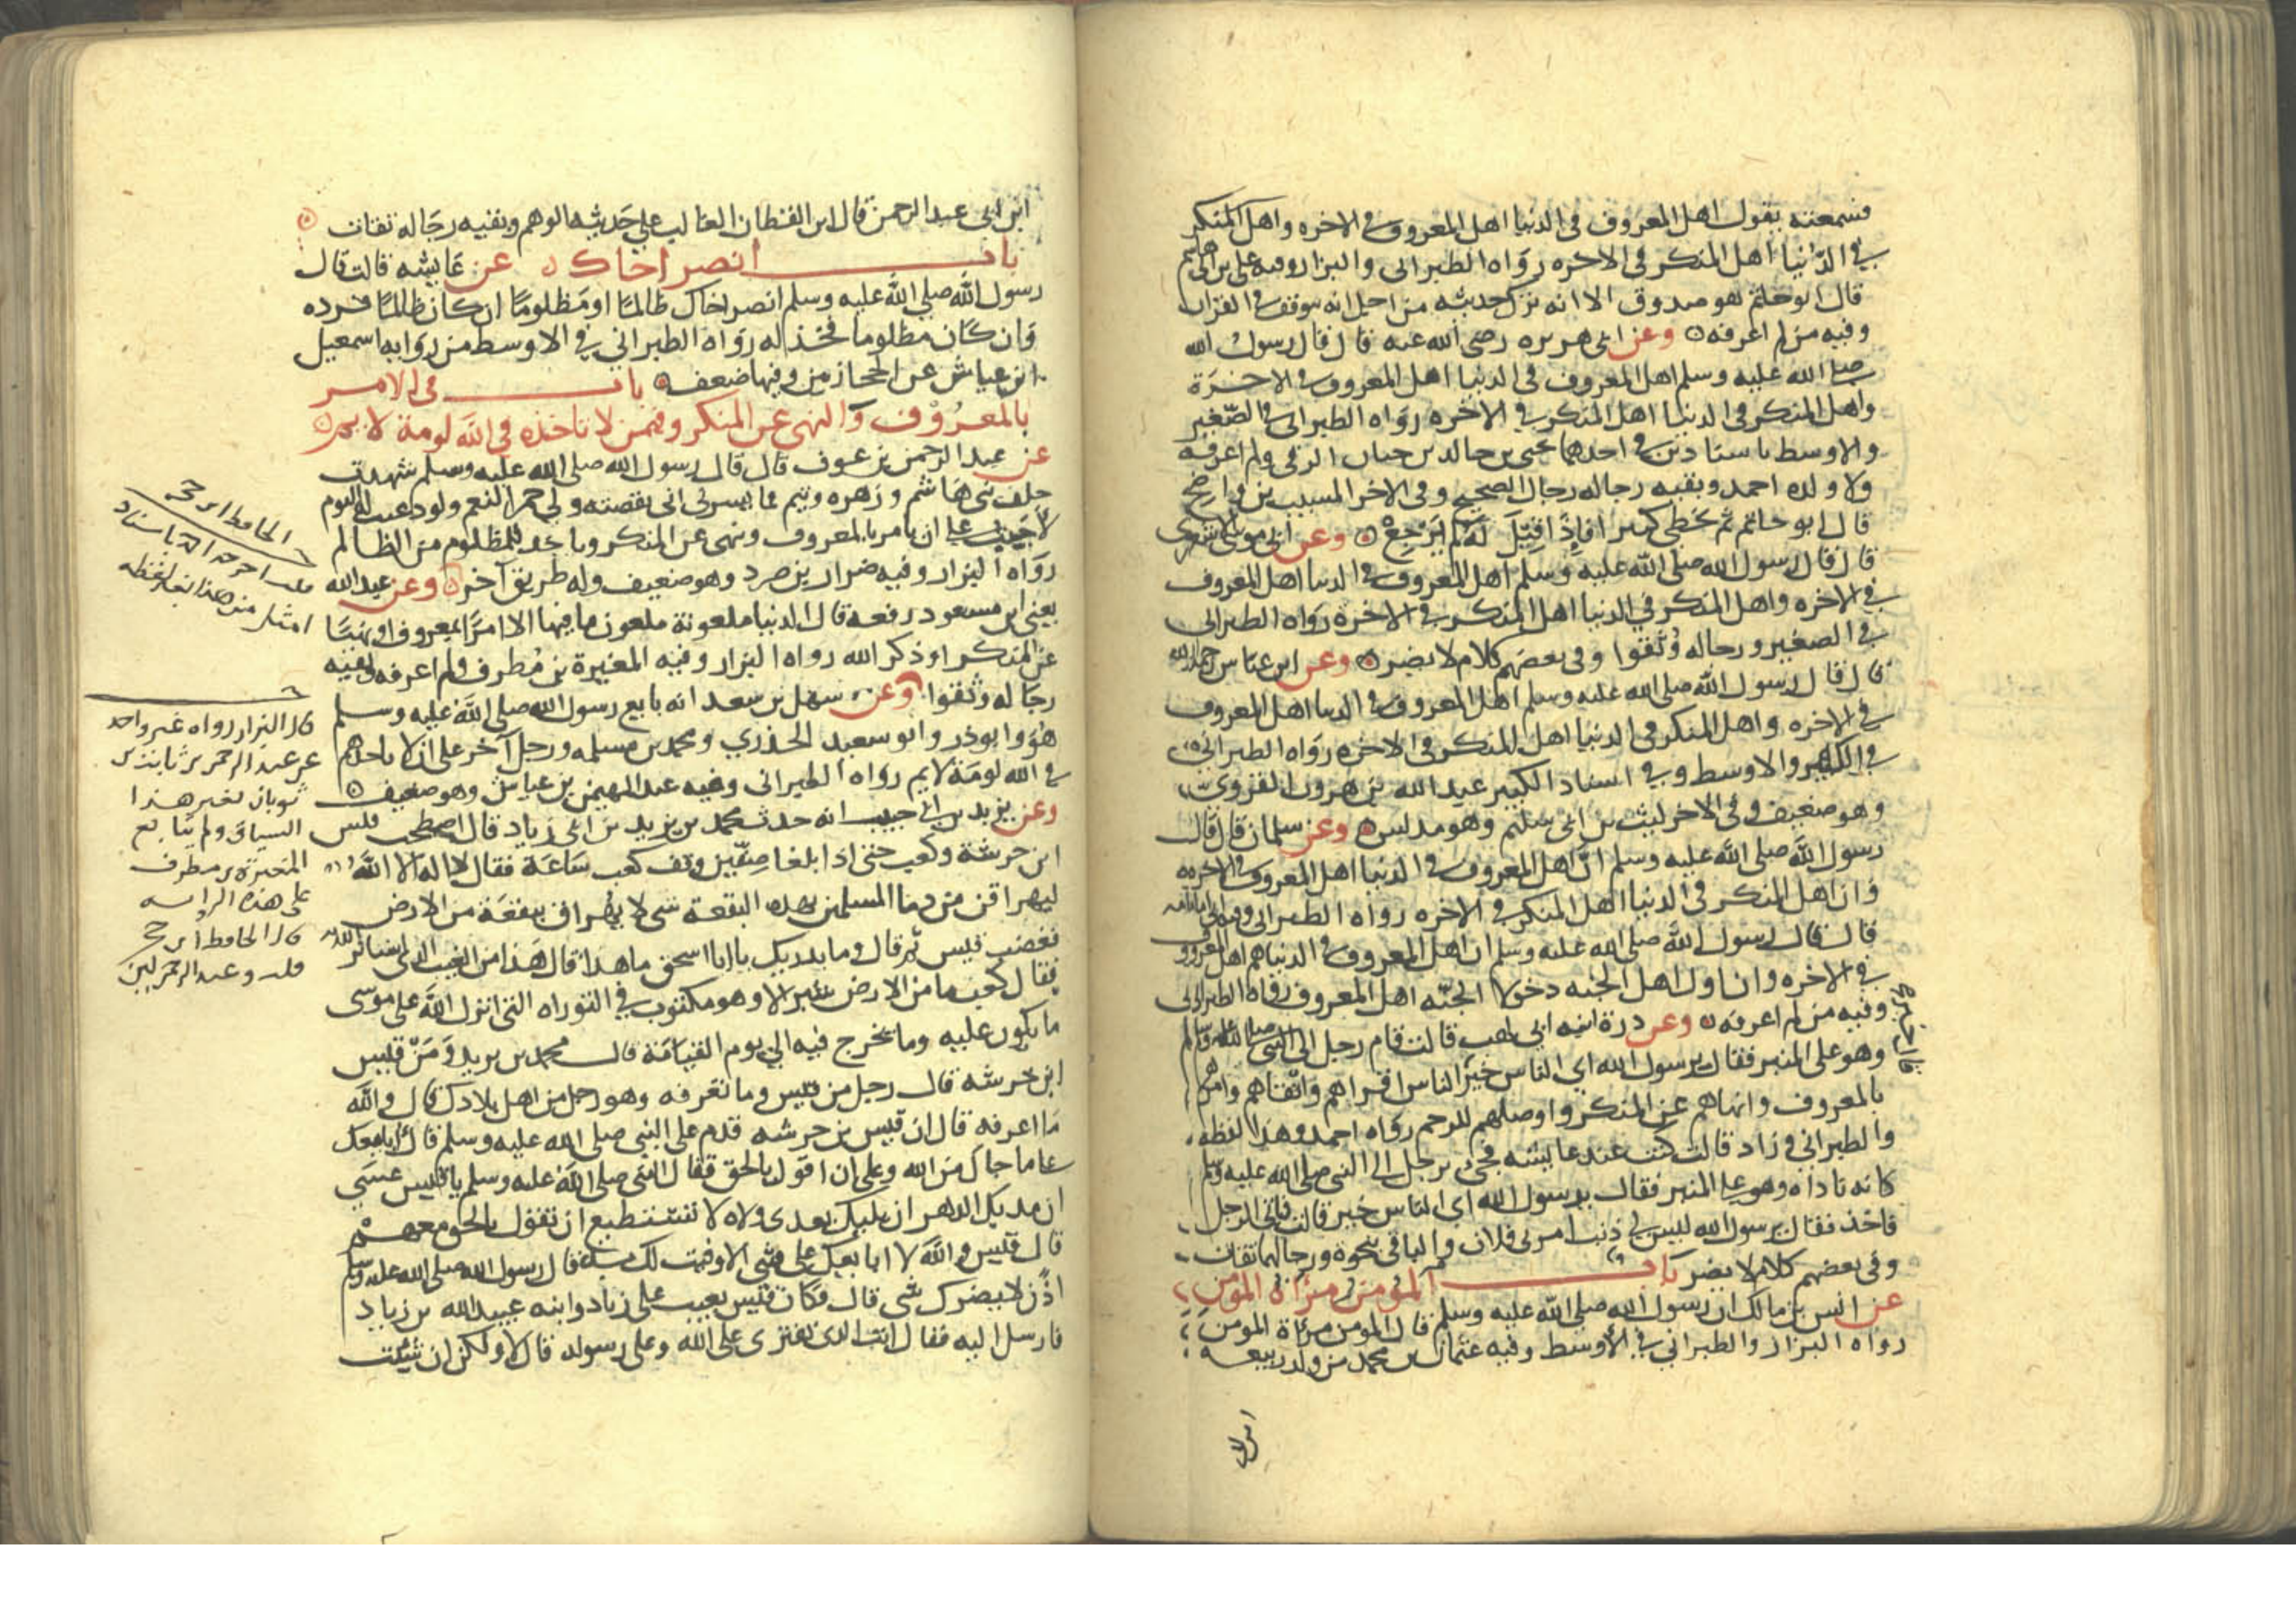 فسمعته يقول اهل المعروف في الدنيا اهل المعروف في الاخره واهل المنكر
في الدنيا اهل المنكر في الاخره رواه الطبراني والبزار وفيه علي بن ابي هاشم
قال ابو حاتم هو صدوق الا انه ترك حديثه من اجل انه يتوقف في القران
وفيه من لم اعرفه وعن ابي هريره رضي الله عنه قال قال رسول الله
صلي الله عليه وسلم اهل المعروف في الدنيا اهل المعروف في الاخرة
واهل المنكر في الدنيا اهل المنكر في الاخره رواه الطبراني في الصغير
والاوسط باسنادين في احدهما يحيى بن خالد بن حيان الرقي ولم اعرفه
ولا ولده احمد وبقيه رجاله رجال الصحيح وفي الاخر المسيب بن واضح
قال ابو حاتم يخطي كثيرا فاذا قيل له لم يرجع وعن ابي موسي الاشعري
قال قال رسول الله صلي الله عليه وسلم اهل المعروف في الدنيا اهل المعروف
في الاخره واهل المنكر في الدنيا اهل المنكر في الاخره رواه الطبراني
في الصغير ورجاله وثقوا وفي بعضهم كلام لا يضير وعن ابن عباس
قال قال رسول الله صلي الله عليه وسلم اهل المعروف في الدنيا اهل المعروف
في الاخره واهل المنكر في الدنيا اهل المنكر في الاخره رواه الطبراني
في الكبير والاوسط وفي اسناد الكبير عبد الله بن هرون الفروي
وهو ضعيف وفي الاخر ليث بن ابي سليم وهو مدلس وعن سلمان قال قال
رسول الله صلي الله عليه وسلم ان اهل المعروف في الدنيا اهل المعروف في الاخره
وان اهل المنكر في الدنيا اهل المنكر في الاخره رواه الطبراني وعن ابي امامه
قال قال رسول الله صلي الله عليه وسلم ان اهل المعروف في الدنيا هم اهل المعروف
في الاخره وان اول اهل الجنه دخولا الجنه اهل المعروف رواه الطبراني
وفيه من لم اعرفه وعن درة ابنه ابي لهب قالت قام رجل الي النبي صلي الله عليه وسلم
وهو علي المنبر فقال يرسول الله اي الناس خير قال خير الناس اقراهم واتقاهم وامرهم
بالمعروف وانهاهم عن المنكر واوصلهم للرحم رواه احمد وهذا لفظه
والطبراني وزاد قالت كنت عند عايشه فجيء برجل الي النبي صلي الله عليه وسلم
كانه ناداه وهو علي المنبر فقال يرسول الله اي الناس خير قالت فاتي الرجل
فاخذ فقال يرسول الله ليس لي ذنب امرني فلان والباقي بنحوه ورجالهما ثقات
وفي بعضهم كلام لا يضر باب المؤمن مرأة المؤمن
عن انس بن مالك ان رسول الله صلي الله عليه وسلم قال المومن مرأة المومن
رواه البزار والطبراني في الأوسط وفيه عثمان بن محمد من ولد ربيعه
ابن ابي عبد الرحمن قال ابن القطان الغالب علي حديثه الوهم وبقيه رجاله ثقات
باب انصر اخاك عن عايشه قالت قال
رسول الله صلي الله عليه وسلم انصر اخاك ظالما او مظلوما ان كان ظالما فرده
وان كان مظلوما فخذ له رواه الطبراني في الاوسط من روايه اسمعيل
ابن عياش عن الحجازيين وفيها ضعف باب في الامر
بالمعروف والنهي عن المنكر وفيمن لا تاخذه في الله لومة لايم
عن عبد الرحمن بن عوف قال قال رسول الله صلي الله عليه وسلم شهدت
حلف بني هاشم وزهره وتيم فما يسرني اني نقضته ولي حمر النعم ولو دعيت له اليوم
لاجبت علي ان يامر بالمعروف وينهي عن المنكر وياخذ للمظلوم من الظالم
رواه البزار وفيه ضرار بن صرد وهو ضعيف وله طريق آخر وعن عبد الله
يعني ابن مسعود رفعه قال الدنيا ملعونة ملعون ما فيها الا امرا بمعروف او نهيا
عن المنكر او ذكر الله رواه البزار وفيه المغيرة بن مطرف ولم اعرفه وبقيه
رجاله وثقوا وعن سهل بن سعد انه بايع رسول الله صلي الله عليه وسلم
هو وابو ذر وابو سعيد الخدري ومحمد بن مسلمه ورجل آخر علي ان لا تاخذهم
في الله لومة لايم رواه الطبراني وفيه عبد المهيمن بن عياش وهو ضعيف
وعن يزيد بن ابي حبيب انه حدث محمد بن يزيد بن ابي زياد قال اصطحب قيس
ابن خرشة وكعب حتي اذا بلغا صفين وقف كعب ساعة فقال لا اله الا الله
ليهراقن من دما المسلمين بهذه البقعة شي لا يهراق ببقعة من الارض
فغضب قيس ثم قال وما يدريك يا ابا اسحق ما هذا قال هذا من الغيب الذي استاثر الله به
فقال كعب ما من الارض شبر الا وهو مكتوب في التوراه التي انزل الله علي موسي
ما يكون عليه وما يخرج فيه الي يوم القيامة قال محمد بن يزيد ومن قيس
ابن خرشه قال رجل من قيس وما تعرفه وهو رجل من اهل بلادك قال والله
ما اعرفه قال ان قيس بن خرشه قدم علي النبي صلي الله عليه وسلم فقال ابايعك
علي ما جاك من الله وعلي ان اقول بالحق فقال النبي صلي الله عليه وسلم يا قيس عسي
ان مد بك الدهر ان يليك بعدي ولاه لا تستطيع ان تقول بالحق معهم
قال قيس والله لا ابايعك علي شي الا وفيت لك به قال رسول الله صلي الله عليه وسلم
اذن لا يضرك شي قال فكان قيس يعيب علي زياد وابنه عبيد الله بن زياد
فارسل اليه فقال انت الذي تفتري علي الله وعلي رسوله قال لا ولكن ان شئت
قال البزار رواه غير واحد
عن عبد الرحمن بن ثابت بن
ثوبان بغير هذا
السياق ولم يتابع
المغيرة بن مطرف
علي هذه
قال الحافظ ابن حجر
قلت وعبد الرحمن لين